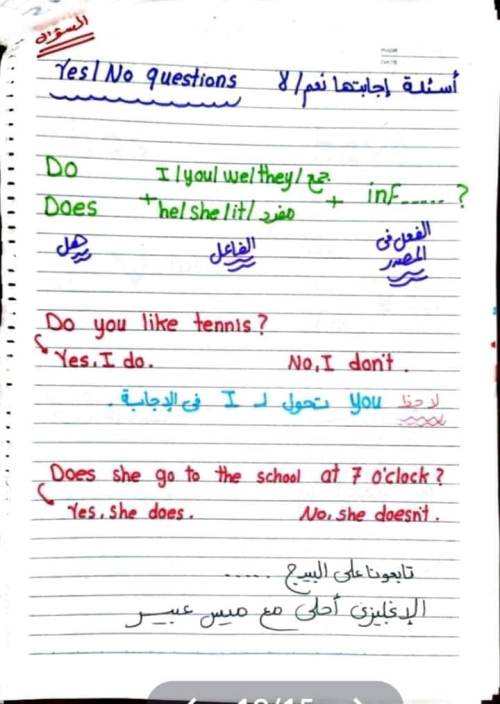 السؤال
Yes/No questions أسئلة إجابتها نعم/لا
Do I/you/we/they/ جمع
Does + he/she/it/ مفرد + inf..... ?
هل الفاعل الفعل فى المصدر
Do you like tennis?
Yes, I do. No, I don't.
لاحظ you تتحول لـ I فى الإجابة.
Does she go to the school at 7 o'clock?
Yes, she does. No, she doesn't.
تابعونا على البيدج .....
الإنجليزى أحلى مع ميس عبير